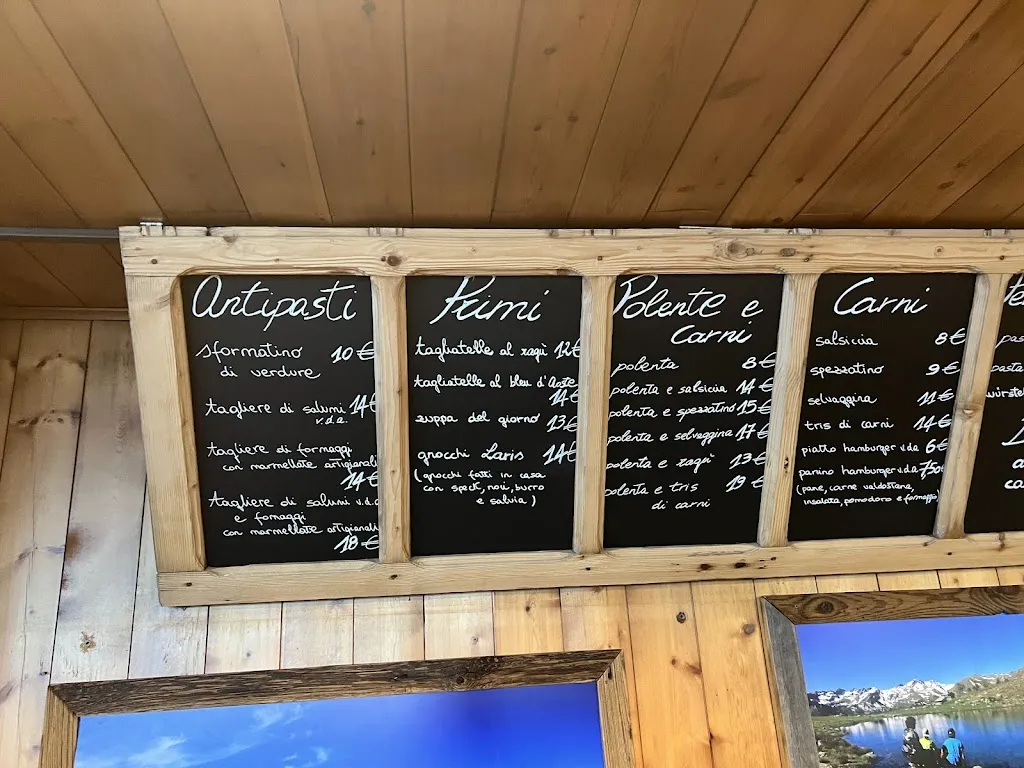 Antipasti
sformatino 10€
di verdure
tagliere di salumi 14€
v.d.a.
tagliere di formaggi
con marmellate artigianali
14€
tagliere di salumi v.d.a
e formaggi
con marmellate artigianali
18€
Primi
tagliatelle al ragù 12€
tagliatelle al bleu d'Aoste
14€
zuppa del giorno 13€
gnocchi Laris 14€
(gnocchi fatti in casa
con speck, noci, burro
e salvia)
Polente e
carni
polenta 8€
polenta e salsiccia 14€
polenta e spezzatino 15€
polenta e selvaggina 17€
polenta e ragù 13€
polenta e tris 19€
di carni
Carni
salsiccia 8€
spezzatino 9€
selvaggina 11€
tris di carni 14€
piatto hamburger v.d.a 6€
panino hamburger v.d.a 7,50€
(pane, carne valdostana,
insalata, pomodoro e formaggio)
pasta